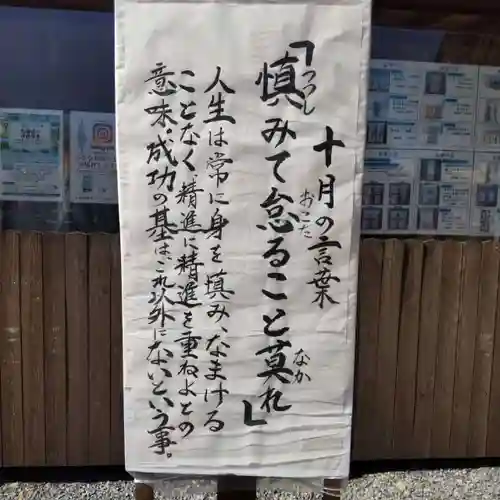 十月の言葉
「慎みて怠ること莫れ」
つつし
おこた
なか
人生は常に身を慎み、なまける
ことなく精進に精進を重ねよとの
意味。成功の基は、これ以外にないという事。